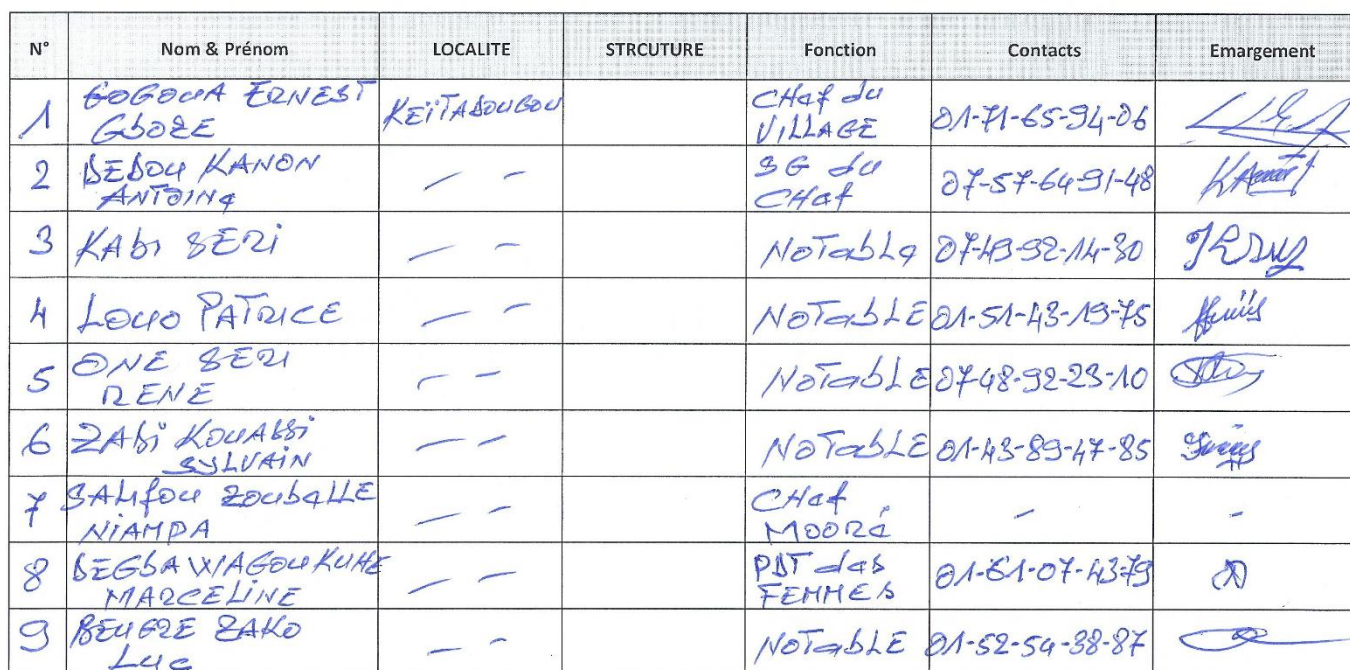 N° Nom & Prénom LOCALITE STRCUTURE Fonction Contacts Emargement
1 GOGOUA ERNEST GBOZE KEÏTADOUGOU CHef du VILLAGE 01-71-65-94-06
2 DEDOU KANON ANTOINe — — SG du CHef 07-57-64-91-48
3 KABI SERI — — NoTabLe 07-49-92-14-30
4 LOUO PATRICE — — NoTabLE 01-51-43-19-75
5 ONE SERI RENE — — NoTabLE 07-48-92-23-10
6 ZABi KOUASSi SYLVAiN — — NoTabLE 01-43-89-47-85
7 SALIfou ZoubeLLE NiAMPA — — CHef MOORé - -
8 DEGBA WAGOUKUHE MARCELiNE — — PDT des FEMMES 01-61-07-43-79
9 BEUGRE ZAKO Luc — — NoTabLE 01-52-54-38-87